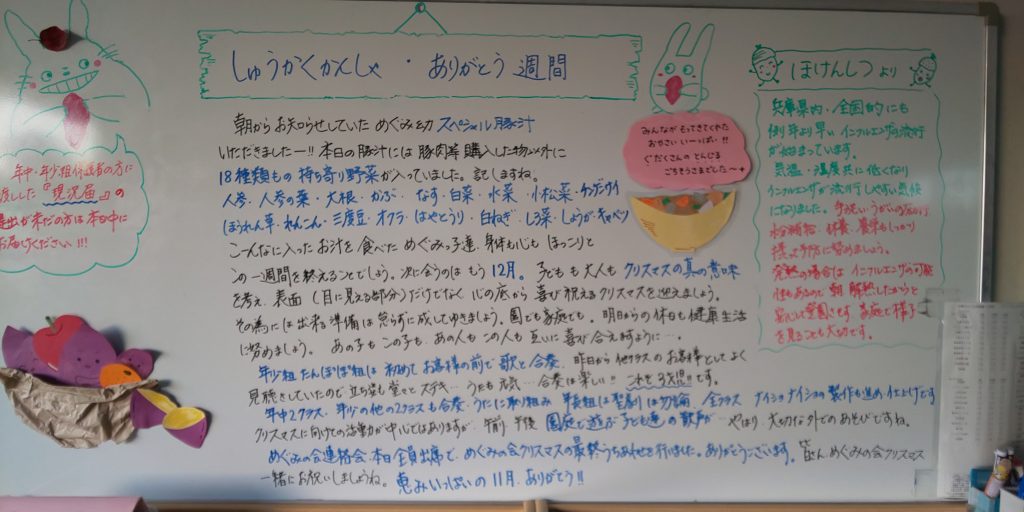 しゅうかくかんしゃ・ありがとう週間
朝からお知らせしていためぐみ幼スペシャル豚汁
いただきましたー!!本日の豚汁には豚肉等購入した物以外に
18種類もの持ち寄り野菜が入っていました。記しますね。
人参・人参の葉・大根・かぶ・なす・白菜・水菜・小松菜・チンゲンサイ
ほうれん草・れんこん・三度豆・オクラ・はやとうり・白ねぎ・しろ菜・しょうが・キャベツ
こーんなに入ったお汁を食べためぐみっ子達、身体も心もほっこりと
この一週間を終えることでしょう。次に会うのはもう12月。子どもも大人もクリスマスの真の意味
を考え、表面(目に見える部分)だけでなく心の底から喜び祝えるクリスマスを迎えましょう。
その為には出来る準備は怠らずに成してゆきましょう。園でも家庭でも。明日からの休日も健康生活
に努めましょう。あの子もこの子も、あの人もこの人も互いに喜び合えますように…。
年少組たんぽぽ組は初めてお客様の前で歌と合奏。昨日から他クラスのお客様としてよく
見聴きしていたので立ち姿も堂々とステキ…うたも元気…合奏は楽しい!!これぞ3歳児!!です。
年中2クラス・年少の他の2クラスも合奏・うたに取り組み 年長組は聖劇は勿論 全クラス ナイショナイショの製作も進め仕上げです
クリスマスに向けての活動が中心ではありますが、午前 午後 園庭で遊ぶ子ども達の歓声が…やはり大切な外でのあそびですね。
めぐみの会連絡会 本日全員出席で、めぐみの会クリスマスの最終うちあわせを行いました。ありがとうございます。皆さんめぐみの会クリスマス
一緒にお祝いしましょうね。恵みいっぱいの11月、ありがとう!!
年中・年少組保護者の方に
渡しした『現況届』の
提出が未だの方は本日中に
お届けください!!!
みんながもってきてくれた
おやさい いーっぱい!!
ぐだくさんのとんじる
ごちそうさまでしたー
ほけんしつより
兵庫県内・全国的にも
例年より早いインフルエンザの流行
が始まっています。
気温・湿度共に低くなり
インフルエンザが流行しやすい気候
になりました。手洗い・うがいの励行
水分補給・休養・栄養もしっかり
摂って予防に努めましょう。
発熱の場合はインフルエンザの可能
性もあるので朝解熱したからと
安心して登園させず、家庭で様子
を見ることも大切です。